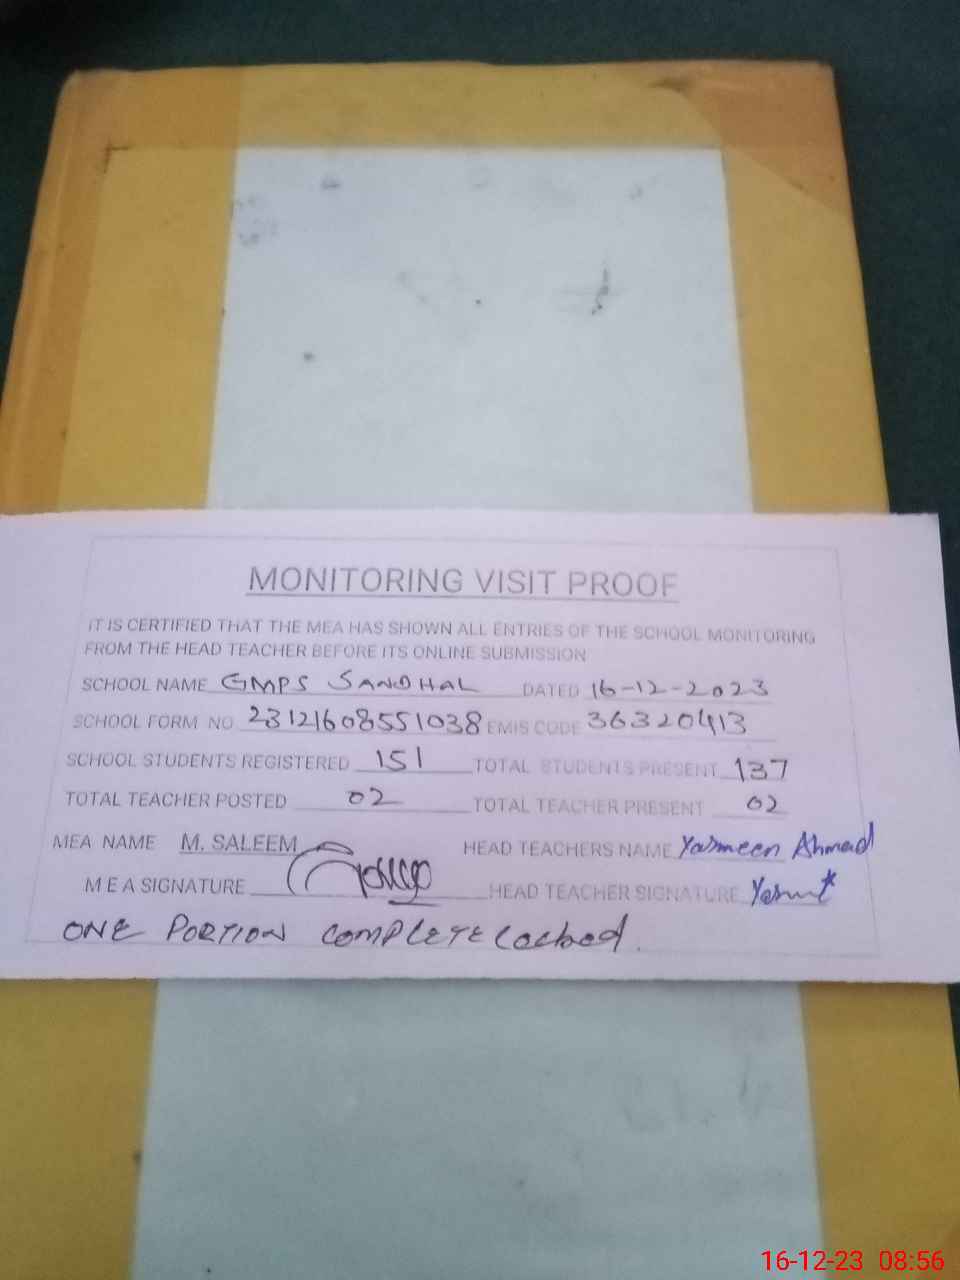 MONITORING VISIT PROOF
IT IS CERTIFIED THAT THE MEA HAS SHOWN ALL ENTRIES OF THE SCHOOL MONITORING
FROM THE HEAD TEACHER BEFORE ITS ONLINE SUBMISSION
SCHOOL NAME GMPS SANDHAL DATED 16-12-2023
SCHOOL FORM NO 23121608551038 EMIS CODE 36320413
SCHOOL STUDENTS REGISTERED 151 TOTAL STUDENTS PRESENT 137
TOTAL TEACHER POSTED 02 TOTAL TEACHER PRESENT 02
MEA NAME M. SALEEM HEAD TEACHERS NAME Yasmeen Ahmad
MEA SIGNATURE HEAD TEACHER SIGNATURE
ONE PORTION COMPLETE Locked.
16-12-23 08:56